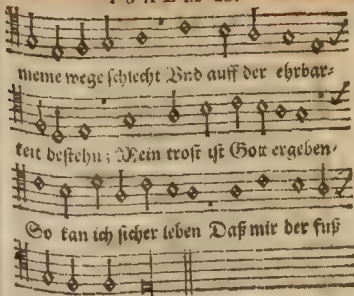 meine wege schlecht Vnd auff der ehrbar⸗
keit bestehn; Mein trost ist Gott ergeben⸗
So kan ich sicher leben Daß mir der fuß